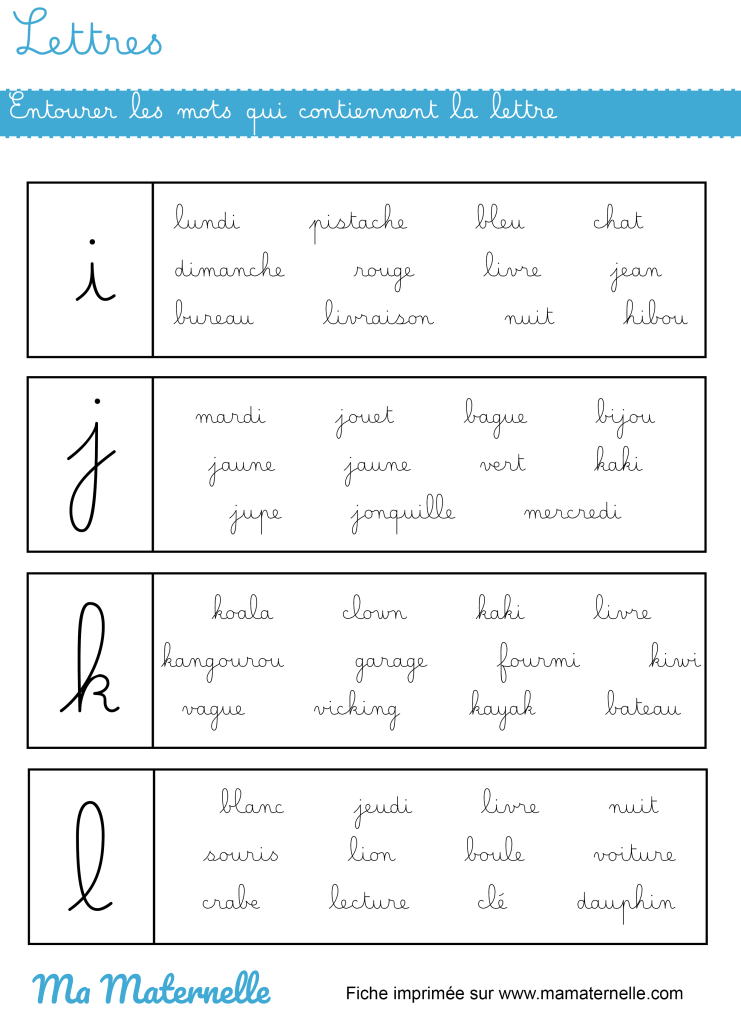 Lettres
Entourer les mots qui contiennent la lettre
i
lundi pistache bleu chat
dimanche rouge livre jean
bureau livraison nuit hibou
j
mardi jouet bague bijou
jaune jaune vert kaki
jupe jonquille mercredi
k
koala clown kaki livre
kangourou garage fourmi kiwi
vague vicking kayak bateau
l
blanc jeudi livre nuit
souris lion boule voiture
crabe lecture clé dauphin
Ma Maternelle Fiche imprimée sur www.mamaternelle.com